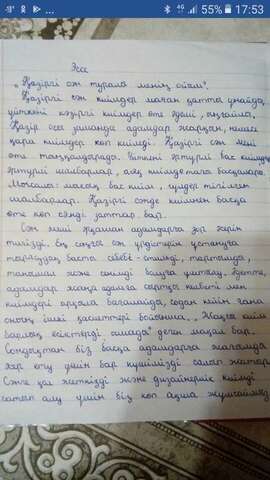 4G 55% 17:53
Эссе
"Қазіргі сән туралы менің ойым".
Қазіргі сән киімдер маған қатты ұнайды,
үйткені қазіргі киімдер өте әдемі, ыңғайлы.
Қазір осы заманда адамдар жарқын, немесе
қара киімдер көп киеді. Қазіргі сән мені
өте таңқалдырады. Үйткені әртүрлі бас киімдер
әртүрлі шалбарлар, киімдер таға басқалары.
Мысалы: масақ бас киім, гүлдер тігілген
шалбарлар. Қазіргі сәнде киімнен басқа
өте көп сәнді заттар бар.
Сән мені адамдарға зор әсерін
тигізді. Ең соңғы сән үрдістерін ұстануға
тырысудың басты себебі - әсемді, тартымды,
танымал және сенімді болуға ұмтылу. Әдетте,
адамдар жаңа адамға сыртқы келбеті мен
киімдері арқылы бағалайды, содан кейін ғана
оның ішкі қасиеттері бойынша. "Жақсы киім
барлық есіктерді ашады" деген мақал бар.
Сондықтан біз басқа адамдарға жағымды
әсер ету үшін бар күшімізді салып жатыр
Сәнге қол жеткізуді және дизайнерлік киімді
сатып алу үшін біз көп ақша жұмсаймыз